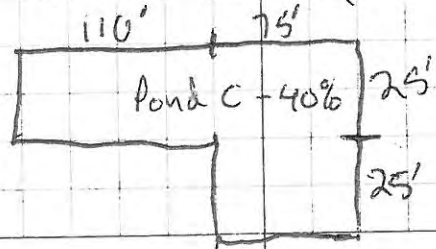 110' 75'
Pond C - 40% 25'
25'